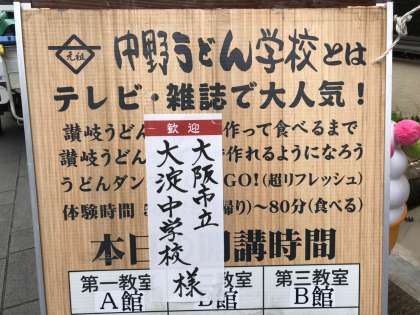 元祖
中野うどん学校とは
テレビ・雑誌で大人気！
讃岐うどん 作って食べるまで
讃岐うどん 作れるようになろう
うどんダン GO!(超リフレッシュ)
体験時間 帰り)～80分(食べる)
歓迎
大阪市立
大淀中学校 様
本日 開講時間
第一教室
第三教室
A館
B館